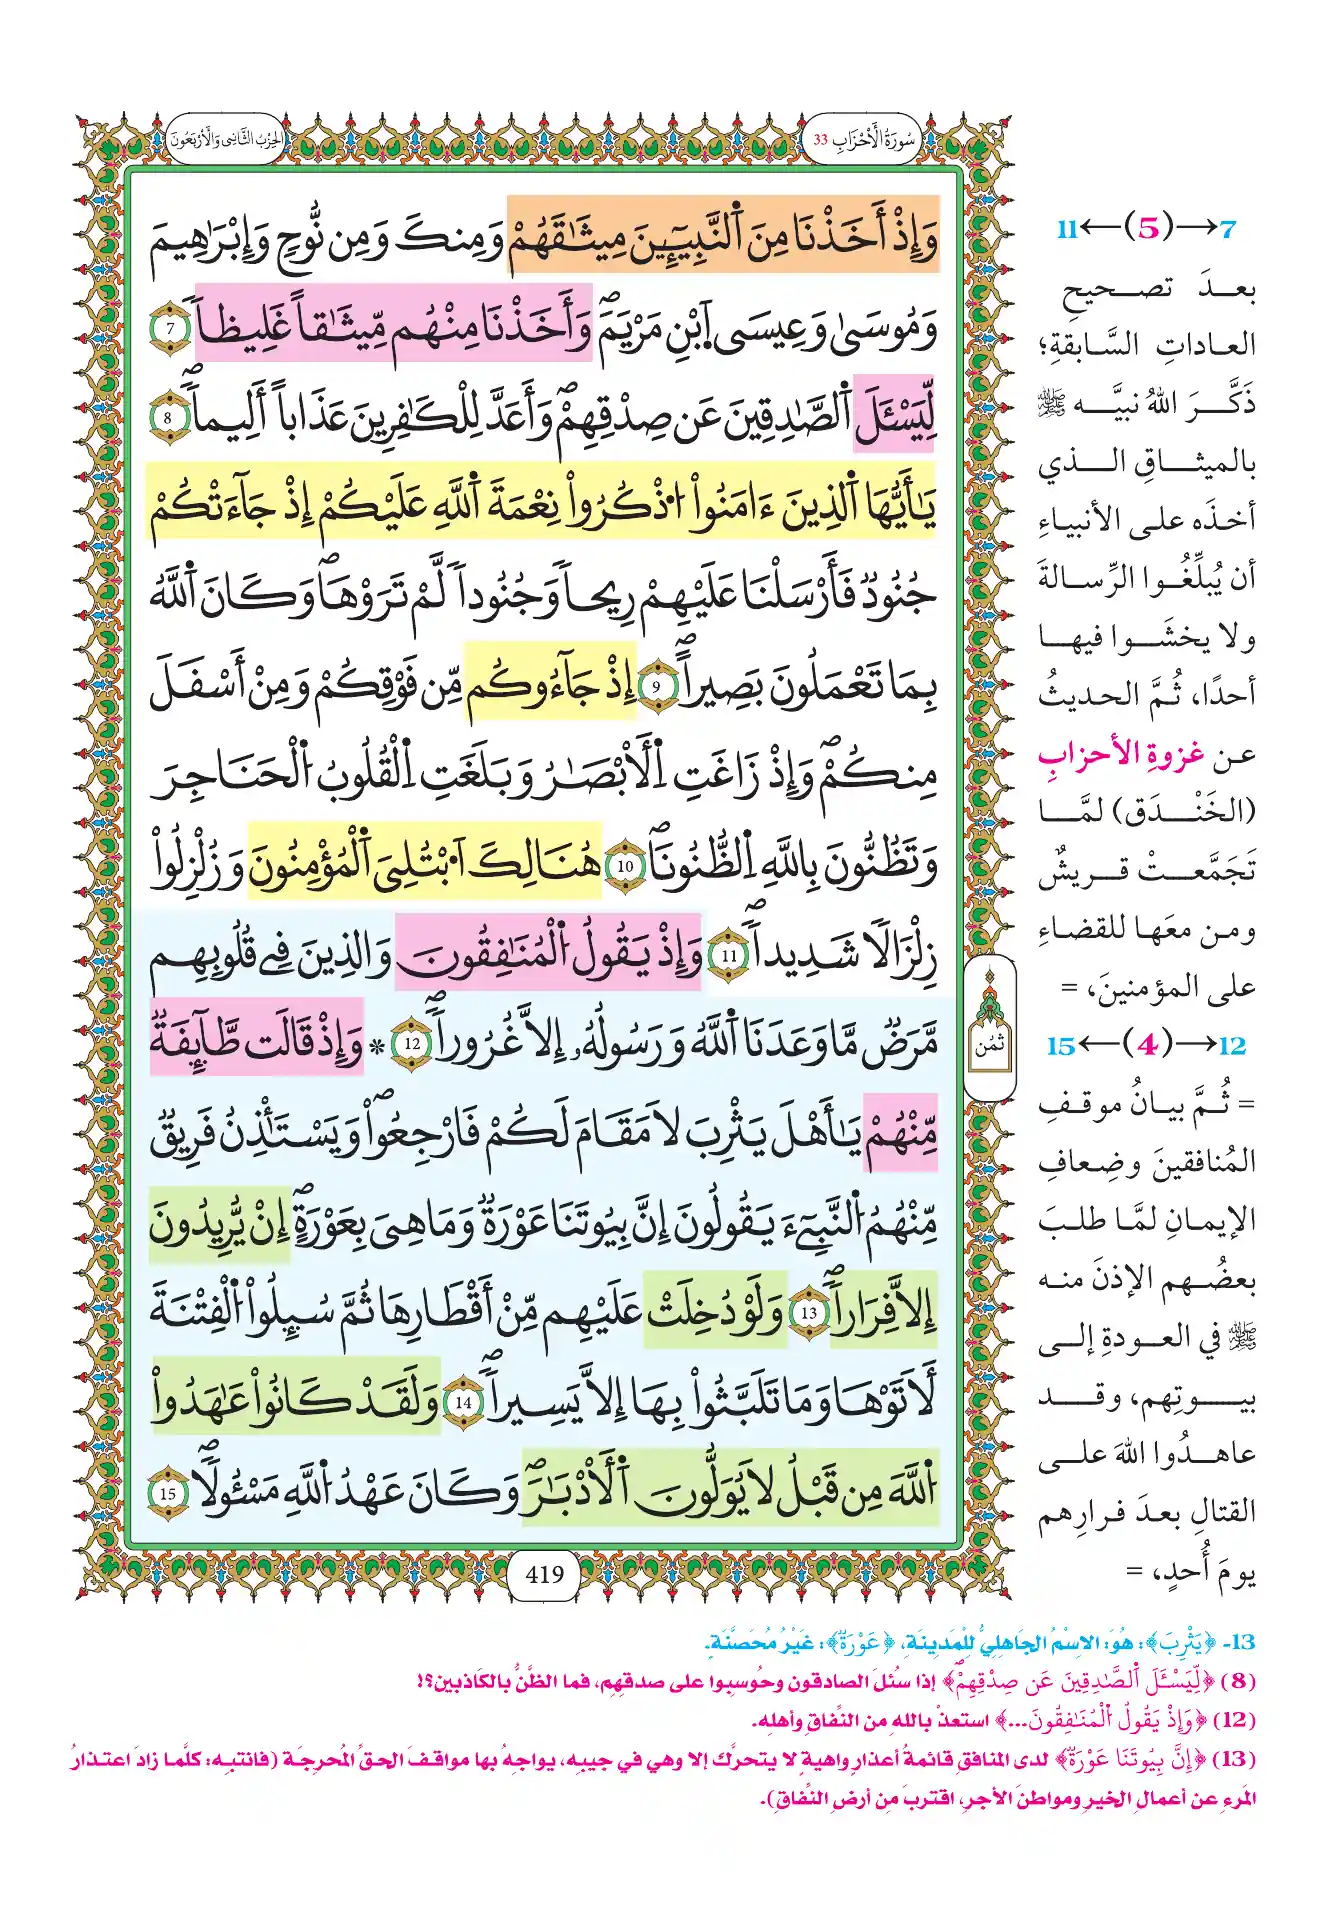 سُورَةُ الْأَحْزَابِ 33
الحِزْبُ الثَّانِي وَالْأَرْبَعُونَ
وَإِذْ أَخَذْنَا مِنَ اَ۬لنَّبِيٓـِٕينَ مِيثَٰقَهُمْ وَمِنكَ وَمِن نُّوحٖ وَإِبْرَٰهِيمَ
وَمُوسَىٰ وَعِيسَى اَ۪بْنِ مَرْيَمَۖ وَأَخَذْنَا مِنْهُم مِّيثَٰقاً غَلِيظاٗ 7
لِّيَسْـَٔلَ اَ۬لصَّٰدِقِينَ عَن صِدْقِهِمْۖ وَأَعَدَّ لِلْكَٰفِرِينَ عَذَاباً أَلِيماٗۖ 8
يَٰأَيُّهَا اَ۬لذِينَ ءَامَنُواْ اُ۟ذْكُرُواْ نِعْمَةَ اَ۬للَّهِ عَلَيْكُمْ إِذْ جَآءَتْكُمْ
جُنُودٞ فَأَرْسَلْنَا عَلَيْهِمْ رِيحاٗ وَجُنُوداٗ لَّمْ تَرَوْهَاۖ وَكَانَ اَ۬للَّهُ
بِمَا تَعْمَلُونَ بَصِيراًۖ 9 إِذْ جَآءُوكُم مِّن فَوْقِكُمْ وَمِنْ أَسْفَلَ
مِنكُمْۖ وَإِذْ زَاغَتِ اِ۬لْأَبْصَٰرُ وَبَلَغَتِ اِ۬لْقُلُوبُ اُ۬لْحَنَاجِرَ
وَتَظُنُّونَ بِاللَّهِ اِ۬لظُّنُونَاۖ 10 هُنَالِكَ اَ۟بْتُلِيَ اَ۬لْمُؤْمِنُونَ وَزُلْزِلُواْ
زِلْزَالاٗ شَدِيداٗۖ 11 وَإِذْ يَقُولُ اُ۬لْمُنَٰفِقُونَ وَالذِينَ فِي قُلُوبِهِم
مَّرَضٞ مَّا وَعَدَنَا اَ۬للَّهُ وَرَسُولُهُۥ إِلَّا غُرُوراٗۖ 12 * وَإِذْ قَالَت طَّآئِفَةٞ
مِّنْهُمْ يَٰأَهْلَ يَثْرِبَ لَا مَقَامَ لَكُمْ فَارْجِعُواْۖ وَيَسْتَٰذِنُ فَرِيقٞ
مِّنْهُمُ اُ۬لنَّبِيٓءَ يَقُولُونَ إِنَّ بِيُوتَنَا عَوْرَةٞ وَمَا هِيَ بِعَوْرَةٍۖ إِنْ يُّرِيدُونَ
إِلَّا فِرَاراٗۖ 13 وَلَوْ دُخِلَتْ عَلَيْهِم مِّنْ أَقْطَارِهَا ثُمَّ سُئِلُواْ اُ۬لْفِتْنَةَ
لَأَتَوْهَا وَمَا تَلَبَّثُواْ بِهَا إِلَّا يَسِيراٗۖ 14 وَلَقَدْ كَانُواْ عَٰهَدُواْ
اُ۬للَّهَ مِن قَبْلُ لَا يُوَلُّونَ اَ۬لْأَدْبَٰرَۖ وَكَانَ عَهْدُ اُ۬للَّهِ مَسْـُٔولاٗۖ 15
ثمُن
419
7→(5)←11
بعدَ تصحيحِ
العاداتِ السَّابقةِ؛
ذَكَّرَ اللهُ نبيَّه ﷺ
بالميثاقِ الذي
أخذَه على الأنبياءِ
أن يُبلِّغُوا الرِّسالةَ
ولا يخشَوا فيها
أحدًا، ثُمَّ الحديثُ
عن غزوةِ الأحزابِ
(الخَنْدَق) لمَّا
تَجَمَّعتْ قريشٌ
ومن معَها للقضاءِ
على المؤمنينَ، =
12→(4)←15
= ثُمَّ بيانُ موقفِ
المُنافقينَ وضِعافِ
الإيمانِ لمَّا طلبَ
بعضُهم الإذنَ منه
ﷺ في العودةِ إلى
بيوتِهم، وقد
عاهدُوا اللهَ على
القتالِ بعدَ فرارِهم
يومَ أُحدٍ، =
13- ﴿يَثْرِبَ﴾: هُوَ: الاِسْمُ الجَاهِلِيُّ لِلْمَدِينَةِ، ﴿عَوْرَةٌ﴾: غَيْرُ مُحَصَّنَةٍ.
(8) ﴿لِّيَسْـَٔلَ اَ۬لصَّٰدِقِينَ عَن صِدْقِهِمْۖ﴾ إذا سُئلَ الصادقون وحُوسِبوا على صدقِهِم، فما الظَّنُّ بالكَاذبين؟!
(12) ﴿وَإِذْ يَقُولُ اُ۬لْمُنَٰفِقُونَ...﴾ استعذْ باللهِ من النِّفاقِ وأهلِه.
(13) ﴿إِنَّ بِيُوتَنَا عَوْرَةٞ﴾ لدى المنافقِ قائمةُ أعذارٍ واهيةٍ لا يتحرَّك إلا وهي في جيبِه، يواجهُ بها مواقفَ الحقِّ المُحرِجَة (فانتبِه: كلَّما زادَ اعتذارُ
المَرءِ عن أعمالِ الخيرِ ومواطنَ الأجرِ، اقتربَ من أرضِ النِّفاقِ).